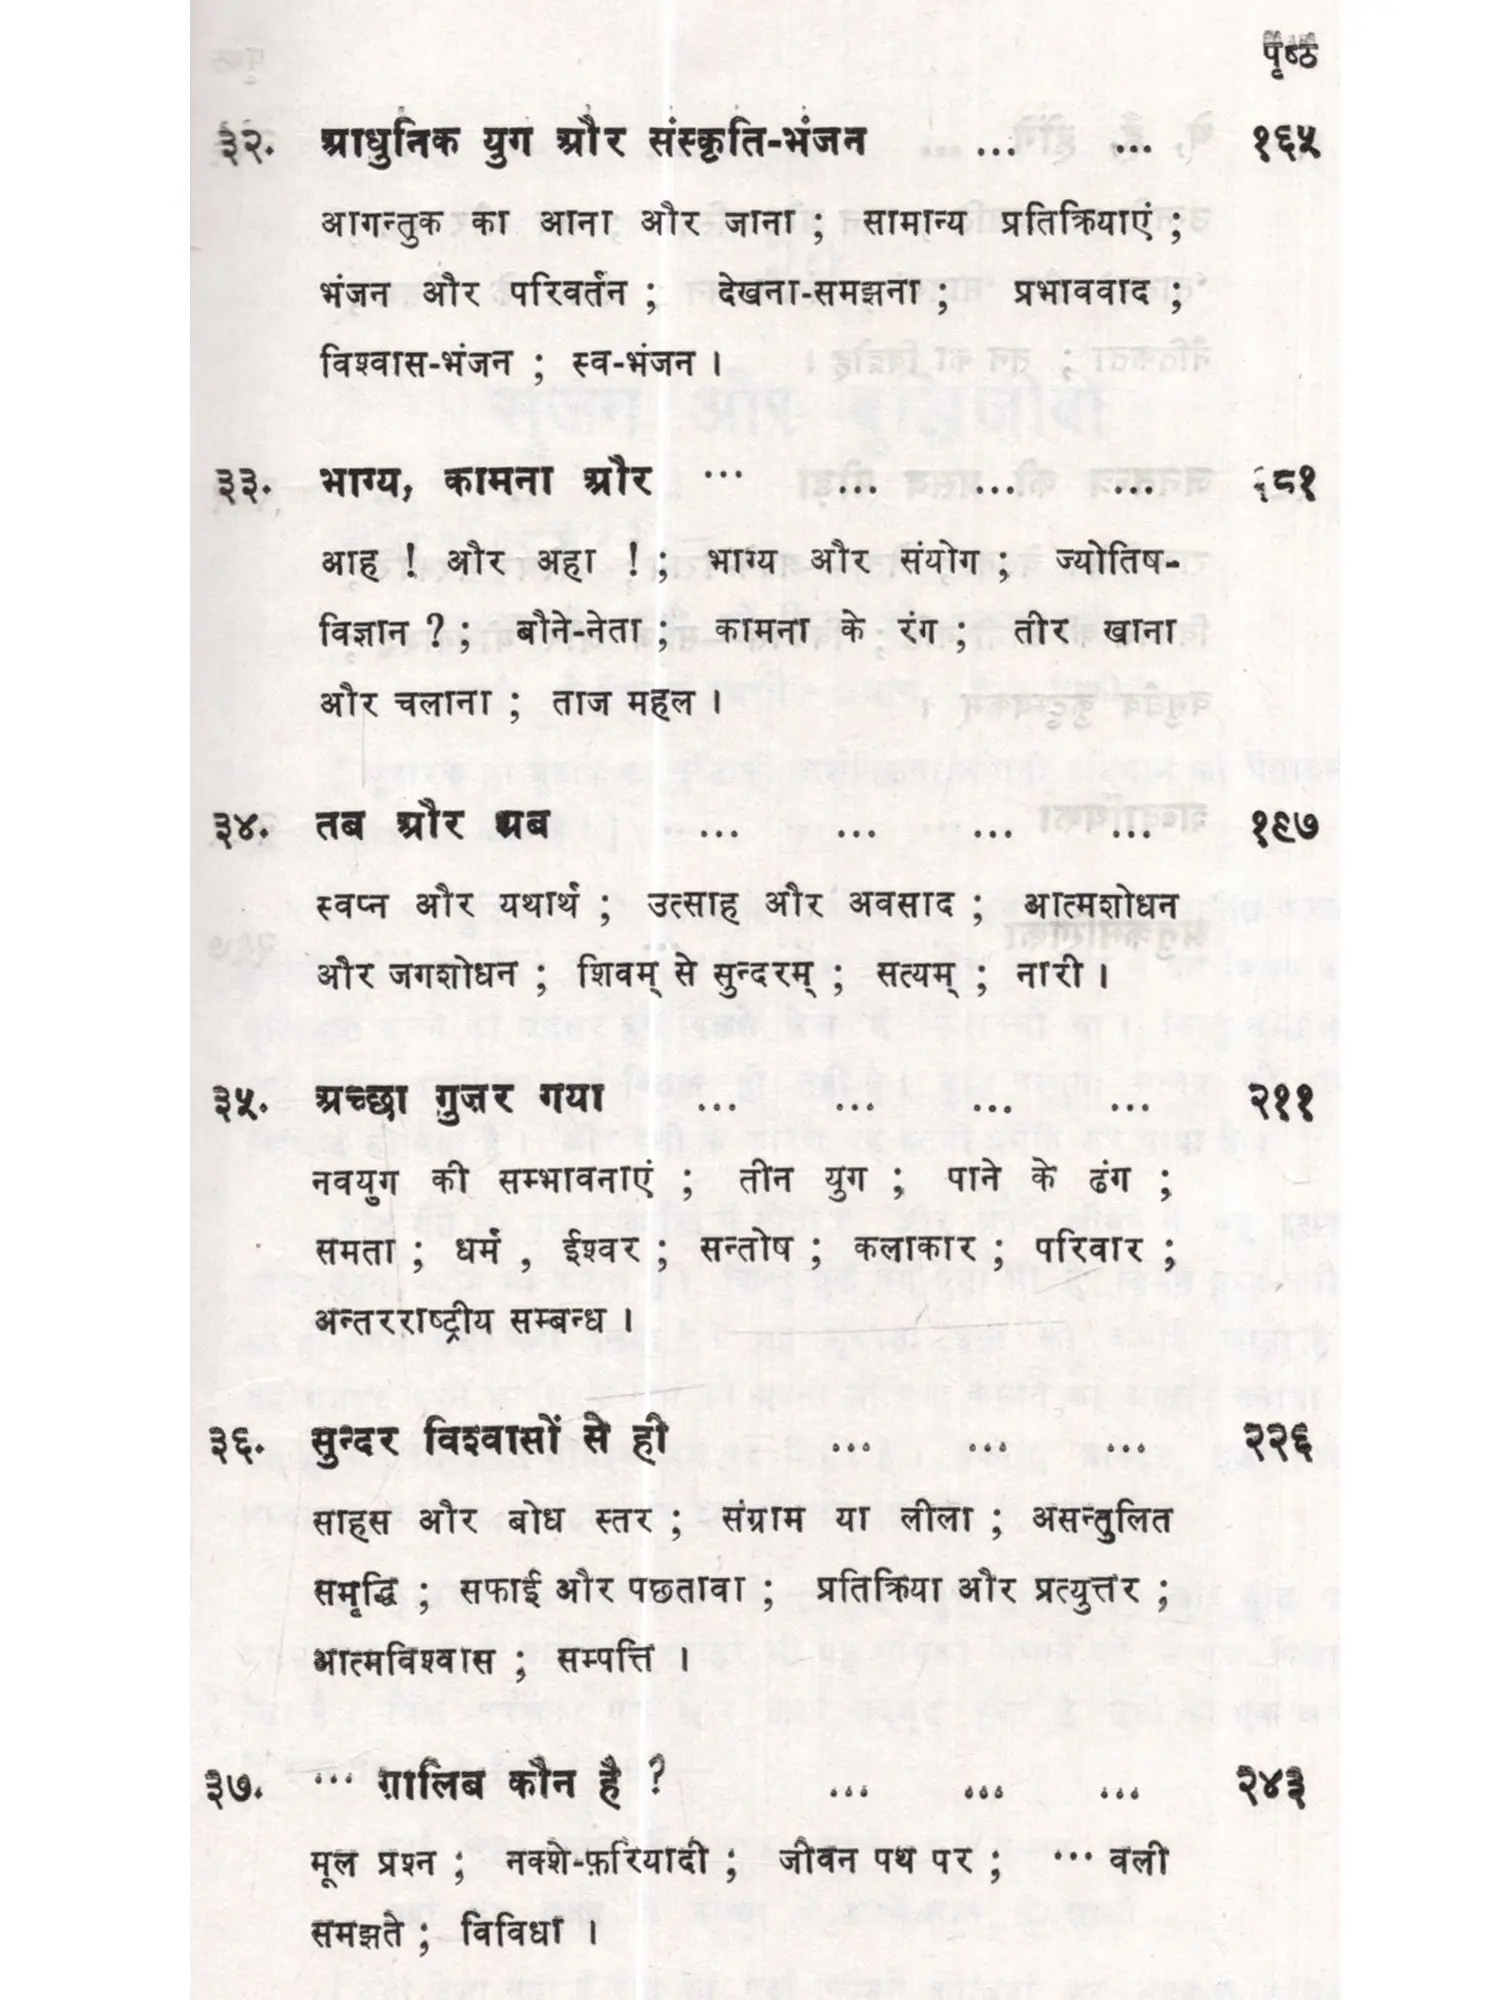 पृष्ठ
३२. आधुनिक युग और संस्कृति-भंजन ... ... १६५
आगन्तुक का आना और जाना ; सामान्य प्रतिक्रियाएं ;
भंजन और परिवर्तन ; देखना-समझना ; प्रभाववाद ;
विश्वास-भंजन ; स्व-भंजन ।
३३. भाग्य, कामना और ... ... ... ... १८१
आह ! और अहा ! ; भाग्य और संयोग ; ज्योतिष-
विज्ञान ? ; बौने-नेता ; कामना के रंग ; तीर खाना
और चलाना ; ताज महल ।
३४. तब और अब ... ... ... ... १९७
स्वप्न और यथार्थ ; उत्साह और अवसाद ; आत्मशोधन
और जगशोधन ; शिवम् से सुन्दरम् ; सत्यम् ; नारी ।
३५. अच्छा गुज़र गया ... ... ... ... २११
नवयुग की सम्भावनाएं ; तीन युग ; पाने के ढंग ;
समता ; धर्म , ईश्वर ; सन्तोष ; कलाकार ; परिवार ;
अन्तरराष्ट्रीय सम्बन्ध ।
३६. सुन्दर विश्वासों से ही ... ... ... २२६
साहस और बोध स्तर ; संग्राम या लीला ; असन्तुलित
समृद्धि ; सफाई और पछतावा ; प्रतिक्रिया और प्रत्युत्तर ;
आत्मविश्वास ; सम्पत्ति ।
३७. ... ग़ालिब कौन है ? ... ... ... २४३
मूल प्रश्न ; नक्शे-फ़रियादी ; जीवन पथ पर ; ... वली
समझते ; विविधा ।